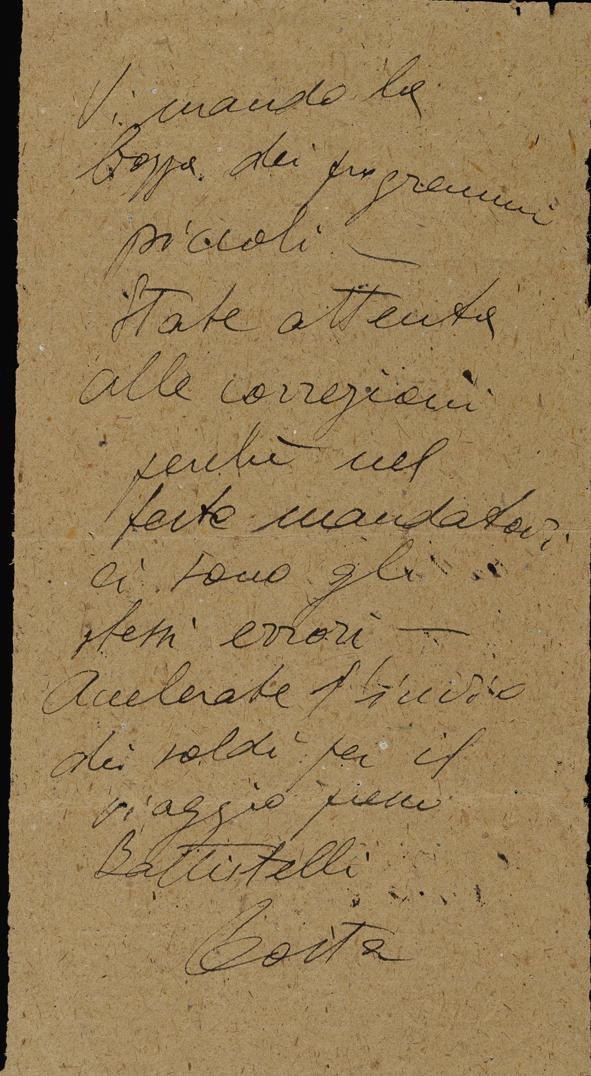 Vi mando la
bozza dei programmi
piccoli —
State attente
alle correzioni
perchè nel
testo mandatovi
ci sono gli
stessi errori —
Accelerate l'invio
dei soldi per il
viaggio presso
Battistelli
Costa